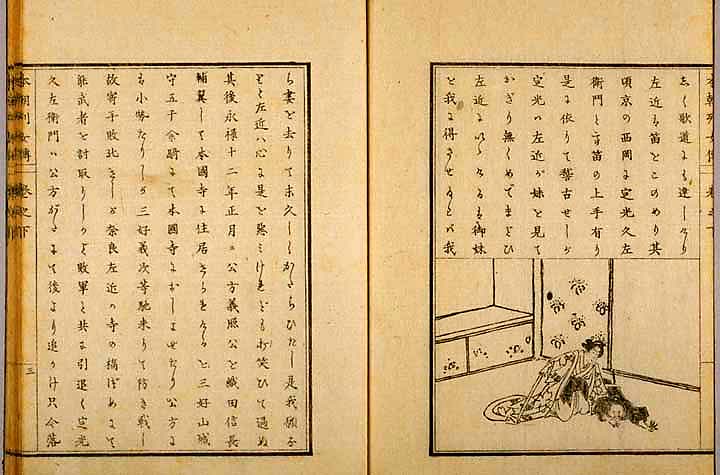 しく歌道にも達しけり
左近も笛をこのめり其
頃京の西岡に定光久左
衛門とて笛の上手有り
是に依りて稽古せしが
定光ハ左近が妹を見て
かぎり無くめでまどひ
左近にいひけるハ御妹
を我に得させ
ら妻を去りて末久しくかたらひたし是我願な
りと左近ハ心に是を惡みけれども 笑ひて過ぬ
其後永禄十二年正月に公方義照公を織田信長
輔翼して本國寺に住居 と三好山城
守五千余騎にて本國寺におしよせたり公方に
も小勢なりしが三好義次等馳来りて防き戦し
故寄手敗北 しが奈良左近ハ寺の橋づめにて
能武者を討取りしかど敗軍と共に引退く定光
久左衛門ハ公方がたにて後より追かけ只今落
本朝列女傳 卷之下
三